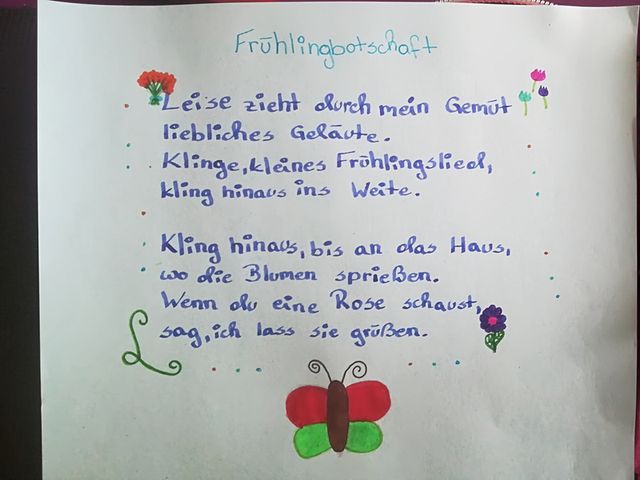 Frühlingbotschaft
Leise zieht durch mein Gemüt
liebliches Geläute.
Klinge, kleines Frühlingslied,
kling hinaus ins Weite.
Kling hinaus, bis an das Haus,
wo die Blumen sprießen.
Wenn du eine Rose schaust,
sag, ich lass sie grüßen.